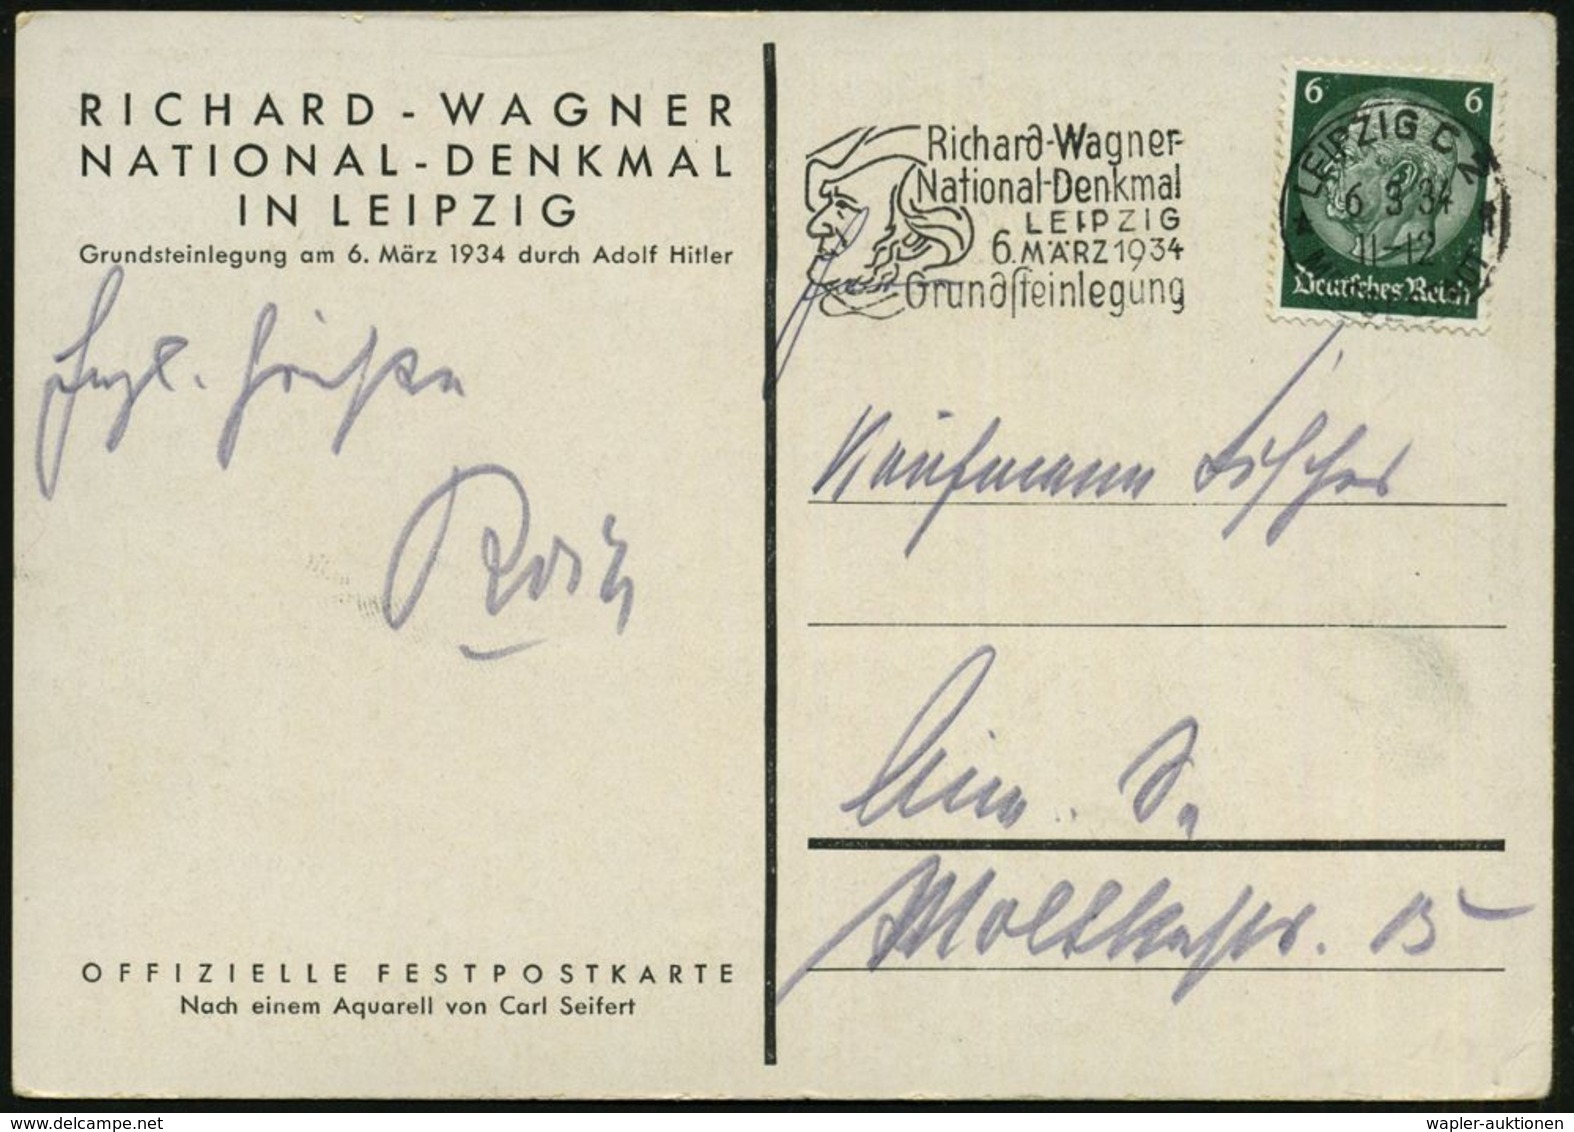 RICHARD - WAGNER
NATIONAL - DENKMAL
IN LEIPZIG
Grundsteinlegung am 6. März 1934 durch Adolf Hitler
Herzl. Grüße
OFFIZIELLE FESTPOSTKARTE
Nach einem Aquarell von Carl Seifert
Richard-Wagner-
National-Denkmal
LEIPZIG
6. MÄRZ 1934
Grundsteinlegung
6 6
Deutsches Reich
LEIPZIG C 2
6 3 34
11-12
Kaufmann Fischer
Moltkestr. 15
wapler-auktionen